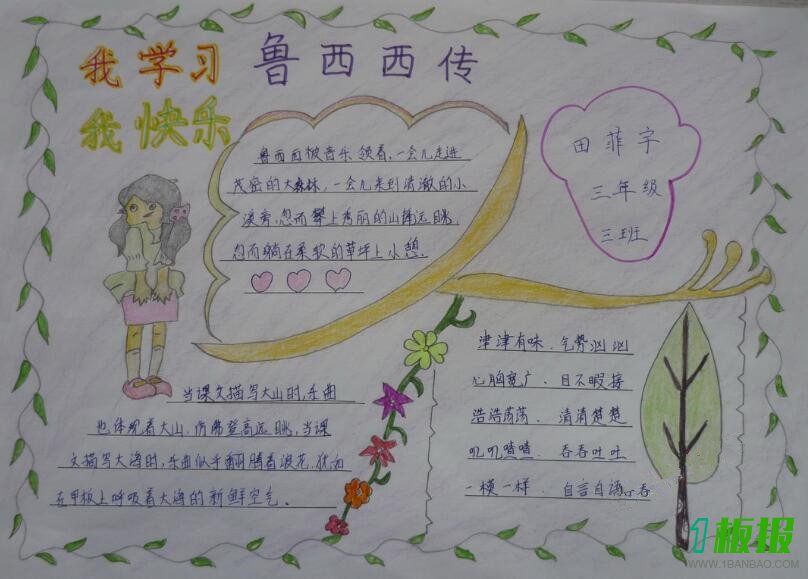 我学习
我快乐
鲁西西传
鲁西西被音乐领着,一会儿走进
茂密的大森林,一会儿来到清澈的小
溪旁,忽而攀上秀丽的山峰远眺,
忽而躺在柔软的草坪上小憩.
田菲宇
三年级
三班
当课文描写大山时,乐曲
也体现着大山,仿佛登高远眺,当课
文描写大海时,乐曲似乎翻腾着浪花,犹如
在甲板上呼吸着大海的新鲜空气.
津津有味.气势汹汹
心胸宽广.目不暇接
浩浩荡荡.清清楚楚
叽叽喳喳.吞吞吐吐
一模一样.自言自语
1板报
WWW.1BANBAO.COM